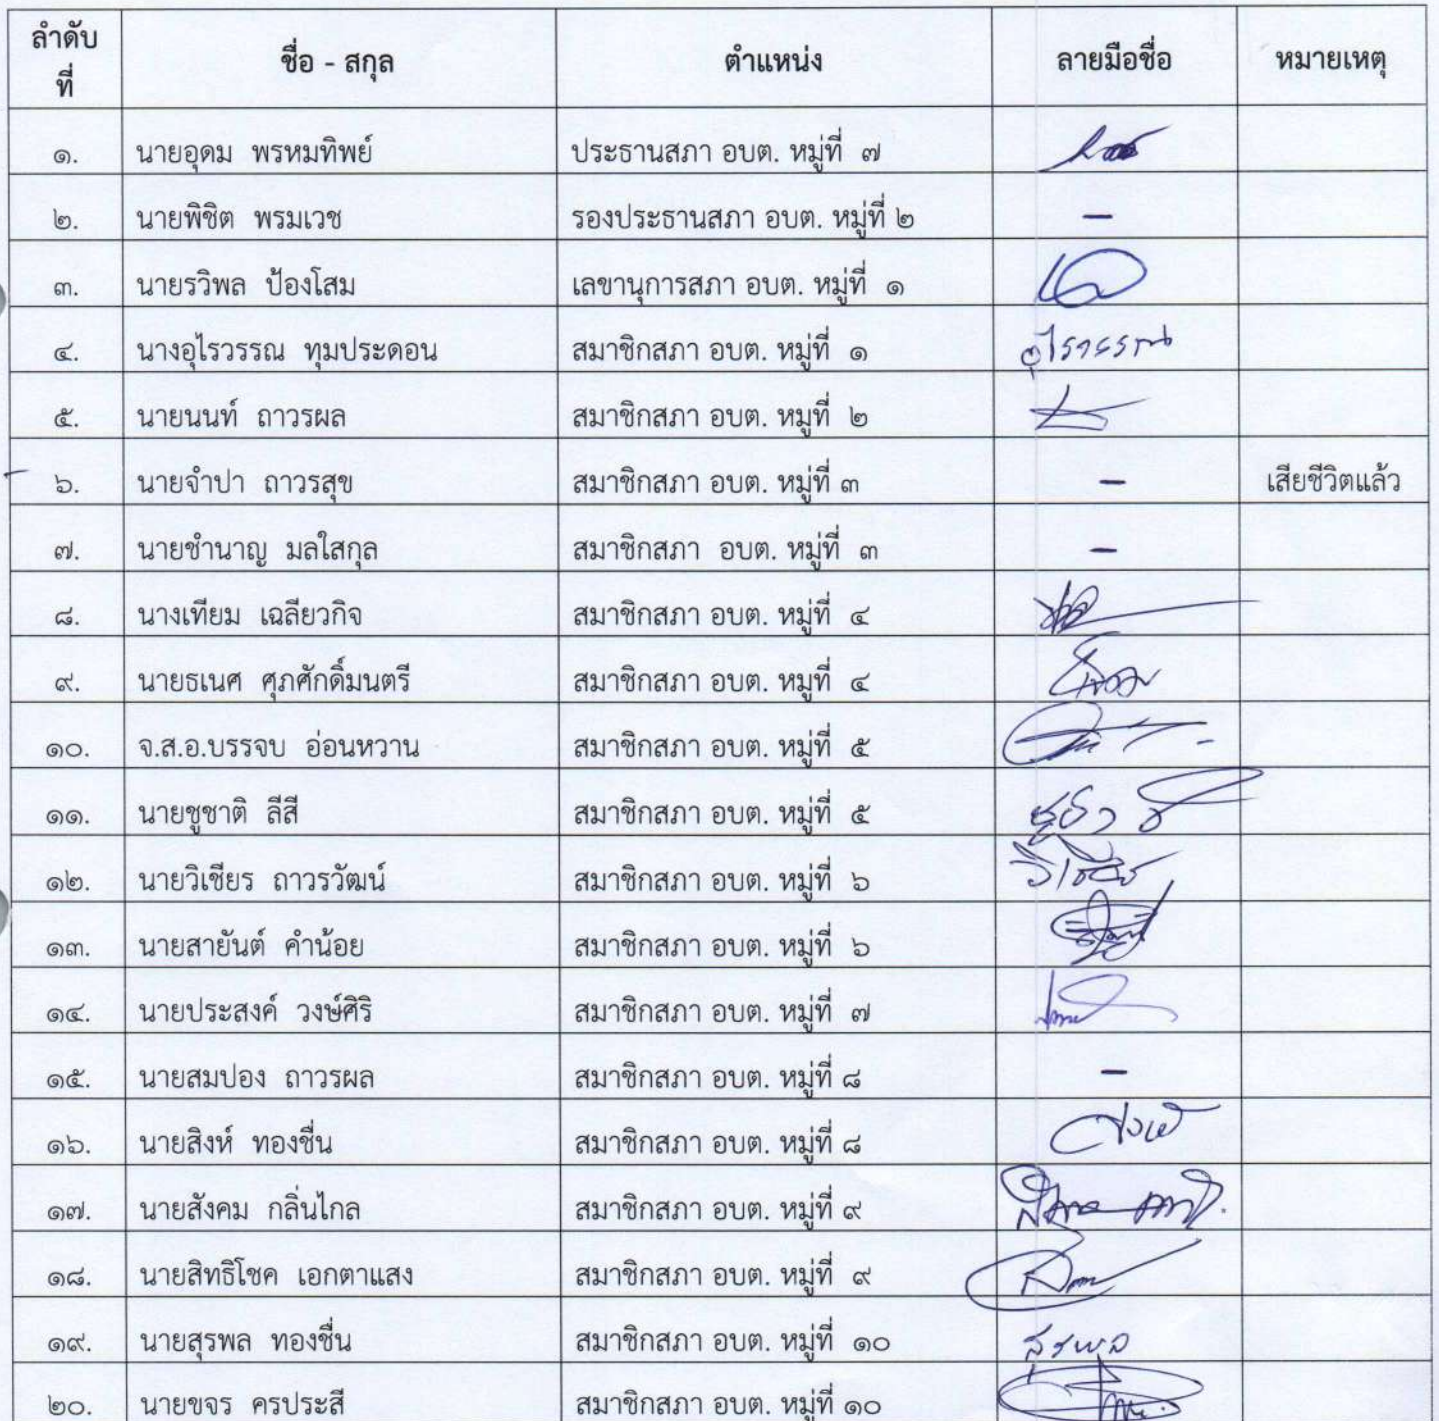 ลำดับ
ที่
ชื่อ - สกุล ตำแหน่ง ลายมือชื่อ หมายเหตุ
๑. นายอุดม พรหมทิพย์ ประธานสภา อบต. หมู่ที่ ๗
๒. นายพิชิต พรมเวช รองประธานสภา อบต. หมู่ที่ ๒ –
๓. นายรวิพล ป้องโสม เลขานุการสภา อบต. หมู่ที่ ๑
๔. นางอุไรวรรณ ทุมประดอน สมาชิกสภา อบต. หมู่ที่ ๑ อุไรวรรณ
๕. นายนนท์ ถาวรผล สมาชิกสภา อบต. หมู่ที่ ๒
๖. นายจำปา ถาวรสุข สมาชิกสภา อบต. หมู่ที่ ๓ – เสียชีวิตแล้ว
๗. นายชำนาญ มลใสกุล สมาชิกสภา อบต. หมู่ที่ ๓ –
๘. นางเทียม เฉลียวกิจ สมาชิกสภา อบต. หมู่ที่ ๔
๙. นายธเนศ ศุภศักดิ์มนตรี สมาชิกสภา อบต. หมูที่ ๔
๑๐. จ.ส.อ.บรรจบ อ่อนหวาน สมาชิกสภา อบต. หมู่ที่ ๕
๑๑. นายชูชาติ ลีสี สมาชิกสภา อบต. หมู่ที่ ๕
๑๒. นายวิเชียร ถาวรวัฒน์ สมาชิกสภา อบต. หมู่ที่ ๖
๑๓. นายสายันต์ คำน้อย สมาชิกสภา อบต. หมู่ที่ ๖
๑๔. นายประสงค์ วงษ์ศิริ สมาชิกสภา อบต. หมู่ที่ ๗
๑๕. นายสมปอง ถาวรผล สมาชิกสภา อบต. หมู่ที่ ๘ –
๑๖. นายสิงห์ ทองชื่น สมาชิกสภา อบต. หมู่ที่ ๘
๑๗. นายสังคม กลิ่นไกล สมาชิกสภา อบต. หมู่ที่ ๙
๑๘. นายสิทธิโชค เอกตาแสง สมาชิกสภา อบต. หมู่ที่ ๙
๑๙. นายสุรพล ทองชื่น สมาชิกสภา อบต. หมู่ที่ ๑๐ สุรพล
๒๐. นายขจร ครประสี สมาชิกสภา อบต. หมู่ที่ ๑๐